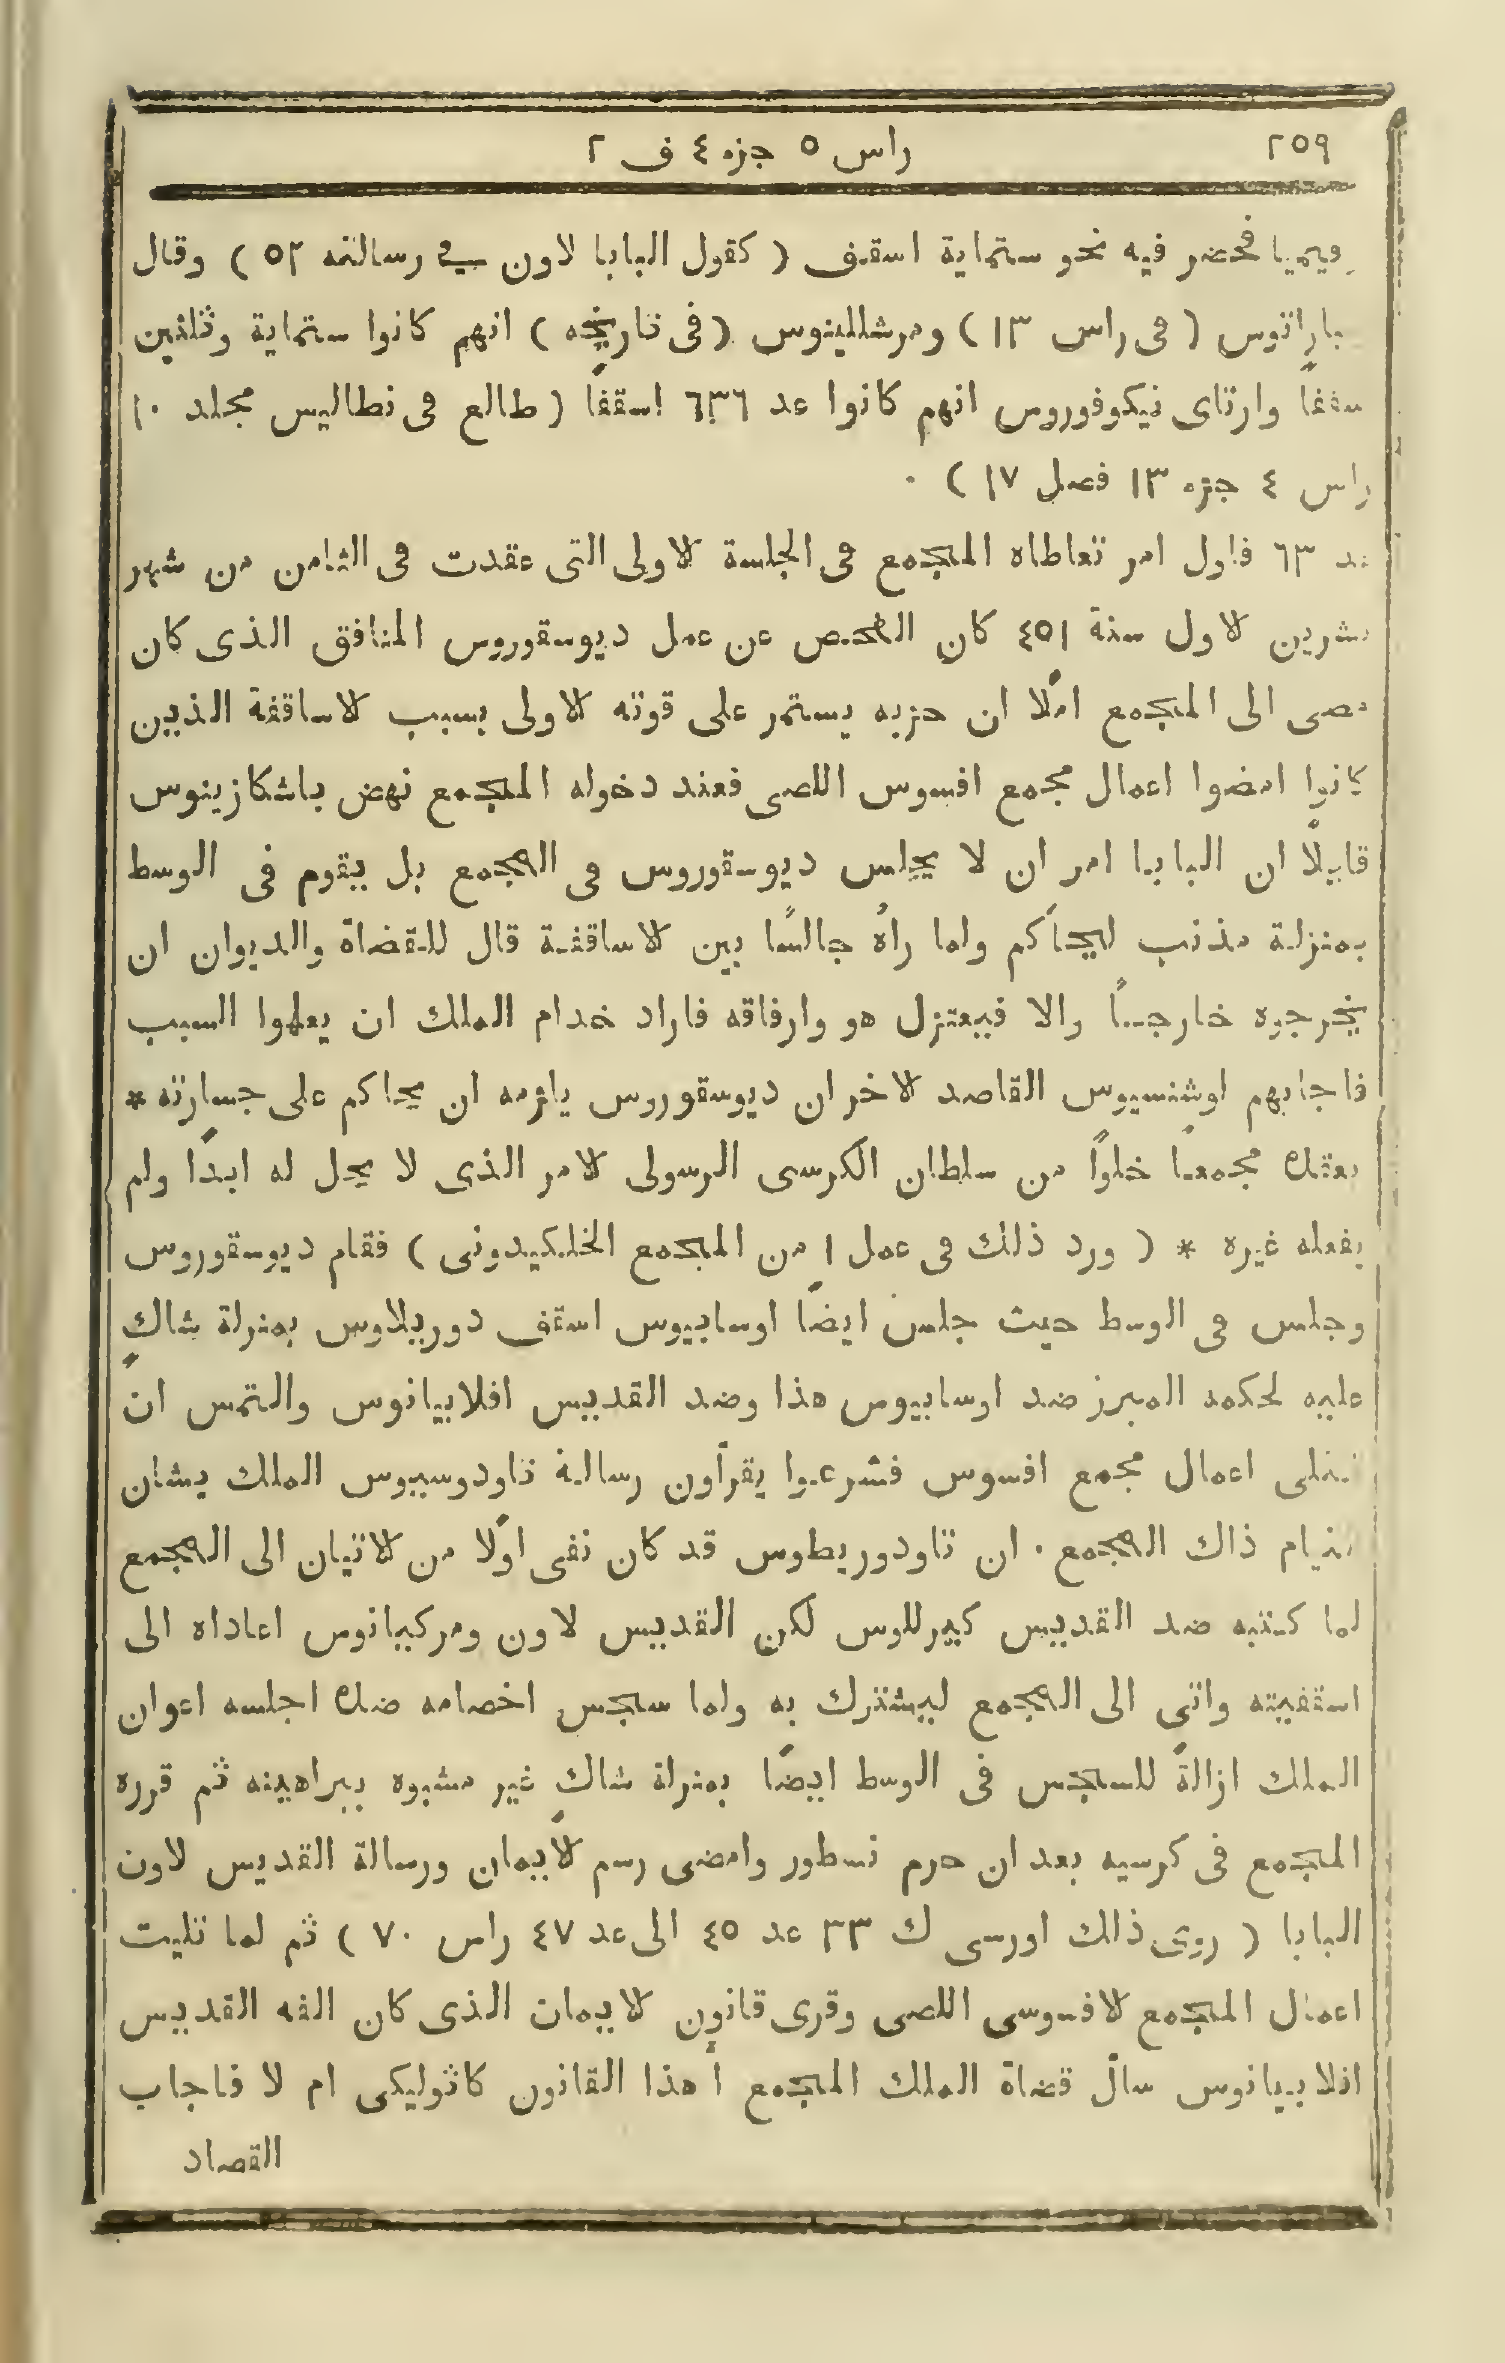 ٢٥٩ راس ٥ جزء ٤ ف ٢
فيميا فحضر فيه نحو ستماية اسقف ( كقول البابا لاون في رسالته ٥٢ ) وقال
باراتوس ( في راس ١٣ ) ومرشللينوس ( في تاريخه ) انهم كانوا ستماية وثلثين
سقفا وارتاى نيكوفوروس انهم كانوا عد ٦٣٦ اسقفا ( طالع في نطاليس مجلد ١٠
راس ٤ جزء ١٣ فصل ١٧ ) ٠
عد ٦٣ فاول امر تعاطاه المجمع في الجلسة الاولى التى عقدت في الثامن من شهر
تشرين الاول سنة ٤٥١ كان الفحص عن عمل ديوسقوروس المنافق الذى كان
مضى الى المجمع املًا ان حزبه يستمر على قوته الاولى بسبب الاساقفة الذين
كانوا امضوا اعمال مجمع افسوس اللصى فعند دخوله المجمع نهض باشكازينوس
قايلًا ان البابا امر ان لا يجلس ديوسقوروس في المجمع بل يقوم في الوسط
بمنزلة مذنب ليحاكم ولما راه جالسًا بين الاساقفة قال للقضاة والديوان ان
يخرجوه خارجًا والا فيعتزل هو وارفاقه فاراد خدام الملك ان يعلموا السبب
فاجابهم لوشنسيوس القاصد الاخر ان ديوسقوروس يلزمه ان يحاكم على جسارته *
بعقده مجمعًا خلوًا من سلطان الكرسى الرسولى الامر الذى لا يحل له ابدًا ولم
يفعله غيره * ( ورد ذلك في عمل ١ من المجمع الخليكيدونى ) فقام ديوسقوروس
وجلس في الوسط حيث جلس ايضًا اوسابيوس اسقف دوريلاوس بمنزلة شاكٍ
عليه لحكمه المبرز ضد اوسابيوس هذا وضد القديس افلابيانوس والتمس ان
تتلى اعمال مجمع افسوس فشرعوا يقرأون رسالة تاودوسيوس الملك بشان
التيام ذاك المجمع ٠ ان تاودوريطوس قد كان نفى اولًا من الاتيان الى المجمع
لما كتبه ضد القديس كيرللوس لكن القديس لاون ومركيانوس اعاداه الى
اسقفيته واتى الى المجمع ليشترك به ولما سجس اخصامه ضده اجلسه اعوان
الملك ازالةً للسجس في الوسط ايضًا بمنزلة شاكٍ غير مشبوه ببراهينه ثم قرره
المجمع في كرسيه بعد ان حرم نسطور وامضى رسم الايمان ورسالة القديس لاون
البابا ( روى ذلك اورسى ك ٣٣ عد ٤٥ الى عد ٤٧ راس ٧٠ ) ثم لما تليت
اعمال المجمع الافسوسى اللصى وقرى قانون الايمان الذى كان الفه القديس
افلابيانوس سال قضاة الملك المجمع أهذا القانون كاثوليكى ام لا فاجاب
القصاد